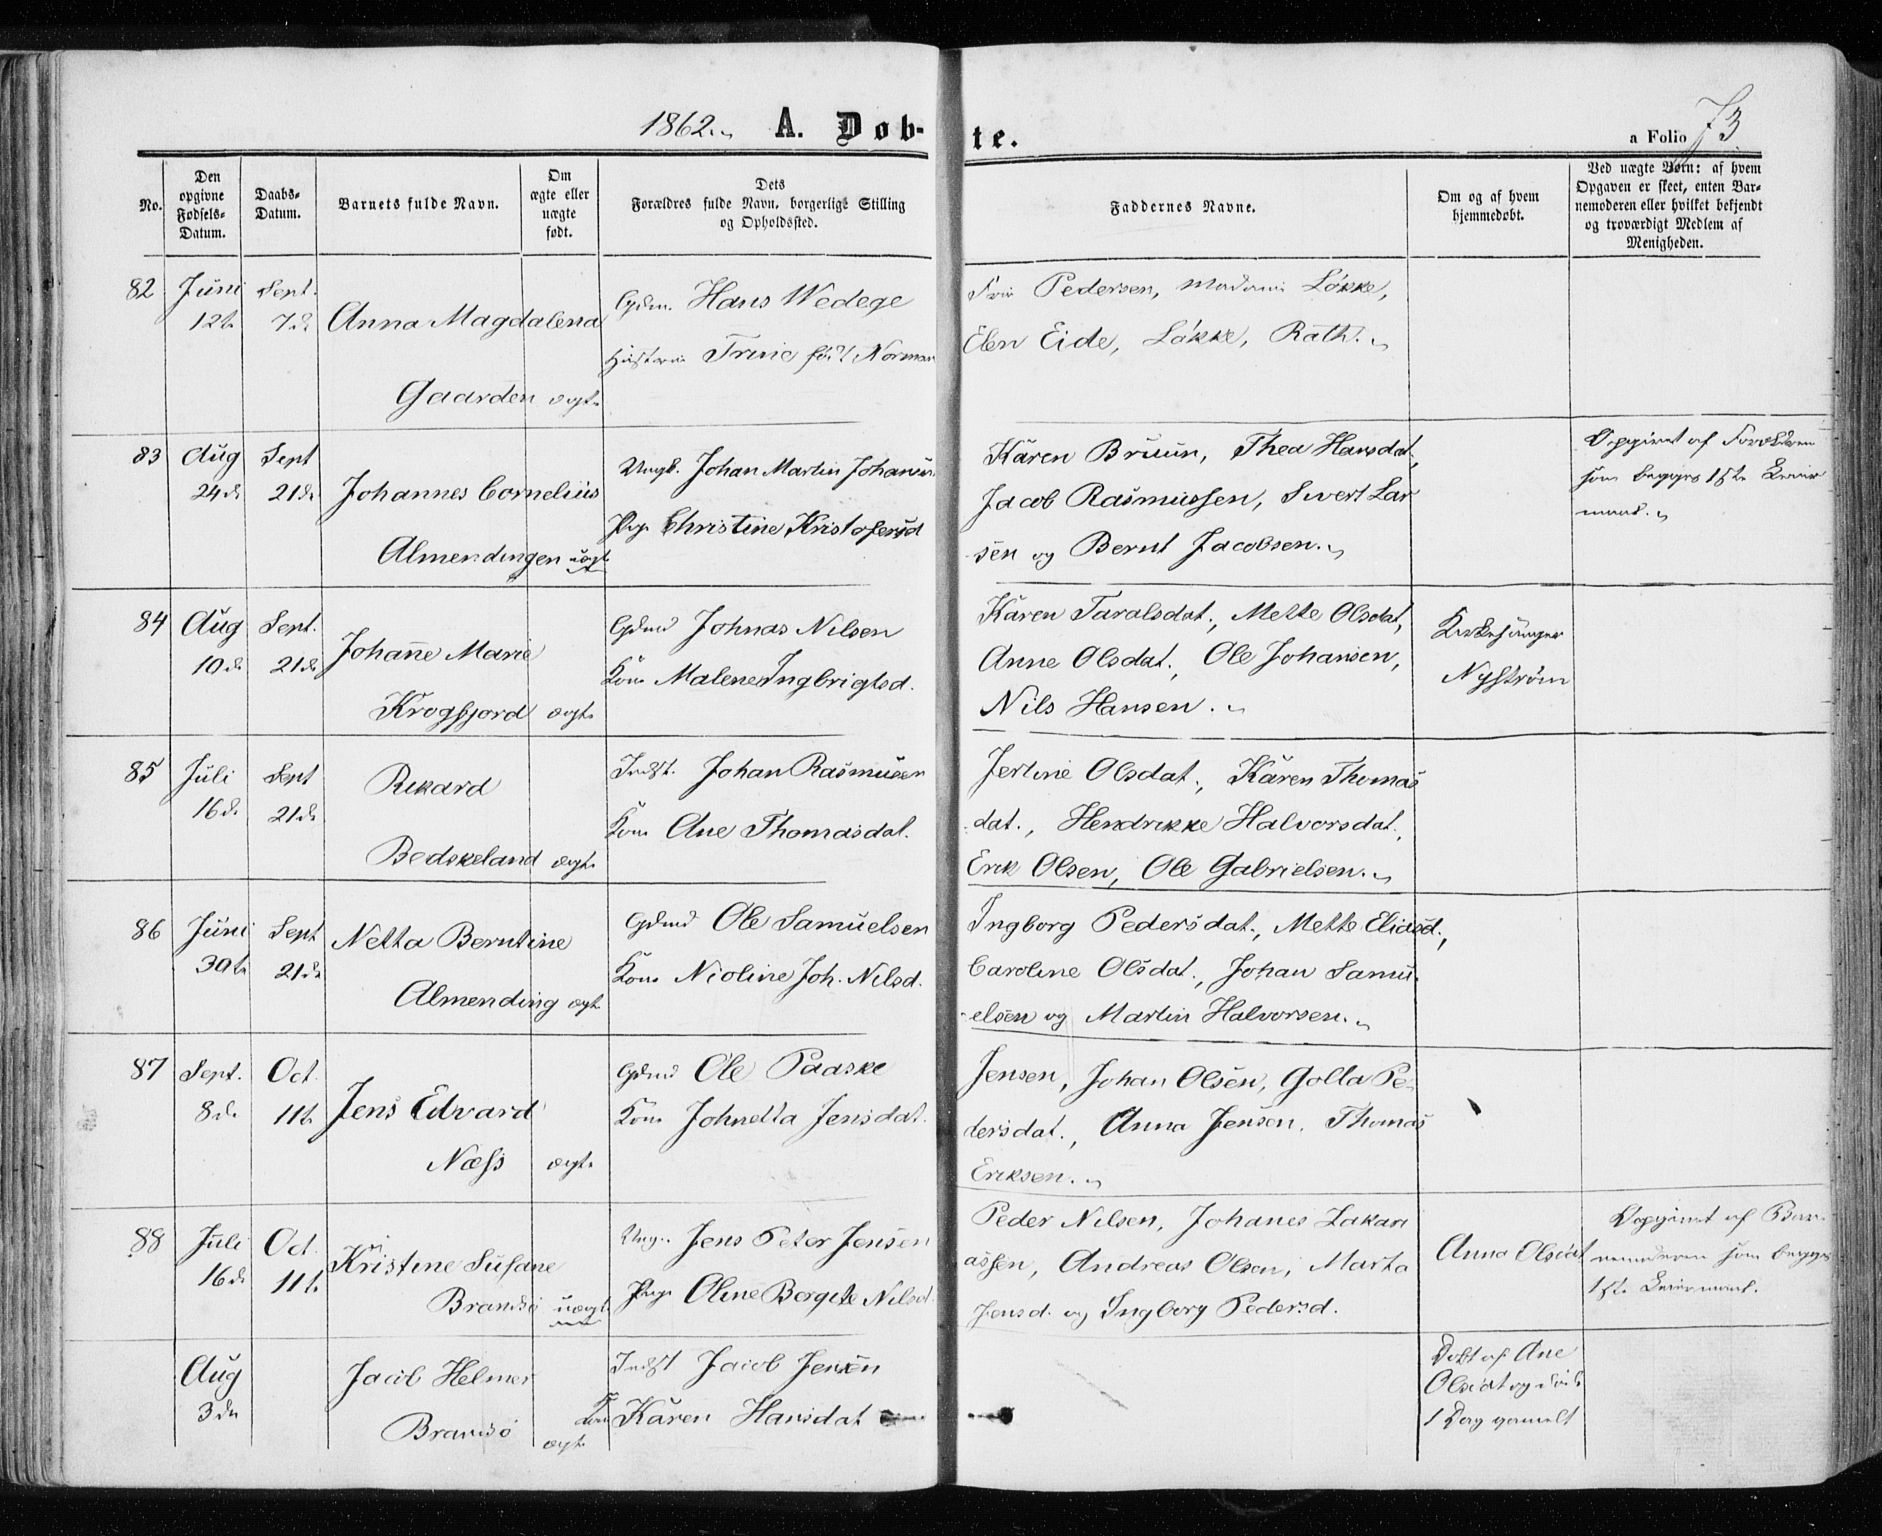 1862. A. Døb- te. a Folio 73.
No.
Den opgivne Fødsels-Datum.
Daabs-Datum.
Barnets fulde Navn.
Om ægte eller uægte født.
Dets Forældres fulde Navn, borgerlige Stilling og Opholdssted.
Faddernes Navne.
Om og af hvem hjemmedøbt.
Ved uægte Børn: af hvem Opgaven er skeet, enten Barnemoderen eller hvilket bekjendt og troværdigt Medlem af Menigheden.
82 Juni Sept.
12te 7de Anna Magdalena
Gaarden ægte
Gdm. Hans Wedege
Hustrue Trine født Norman
Fru Pedersen, Madame Løkke,
Elen Eide, Løkke, Rath.
83 Aug Sept
24de 21de Johannes Cornelius
Almendingen uægte
Ungk. Johan Martin Johansen
Pige Christine Kristofersd
Karen Bruun, Thea Hansdat,
Jacob Rasmussen, Sivert Lar
sen og Bernt Jacobsen.
Opgivet af Forældrene
som begges 1ste Leier
maal.
84 Aug Sept.
10de 21de Johanne Marie
Krogfjord ægte
Gdmd Johnas Nilsen
Kone Malene Ingbrigtsd.
Karen Taralsdat., Mette Olsdat,
Anne Olsdat., Ole Johansen,
Nils Hansen.
Kirkesanger
Nystrøm
85 Juli Sept
16de 21de Rikard
Bedskeland ægte
Indst. Johan Rasmusen
Kone Ane Thomasdat.
Jertine Olsdat., Karen Thomas
dat., Hendrikke Halvorsdat.,
Erik Olsen, Ole Gabrielsen.
86 Juni Sept
30te 21de Netta Berntine
Almending ægte
Gdmd Ole Samuelsen
Kone Nicoline Joh. Nilsd.
Ingborg Pedersdat., Mette Eliasd.,
Caroline Olsdat., Johan Samu-
elsen og Martin Halvorsen.
87 Sept. Oct.
8de 11te Jens Edvard
Næss ægte
Gdmd Ole Paaske
Kone Johnetta Jensdat.
Jensen, Johan Olsen, Golla Pe-
dersdat., Anna Jensen, Thomas
Eriksen.
88 Juli Oct.
16de 11te Kristine Susane
Brandsø uægte
Ung. Jens Peter Jensen
Pige Oline Bergitte Nilsd.
Peder Nilsen, Johanes Zakari
assen, Andreas Olsen, Marta
Jensd. og Ingborg Pedersd.
Anna Olsdat
Opgivet af Bar-
nemoderen som begges
1ste Leiermaal.
Aug
3de Jacob Helmer
Brandsø ægte
Indst Jacob Jensen
Kone Karen Hansdat
Døbt af Ane
Olsdat og død
1 Dag gamelt